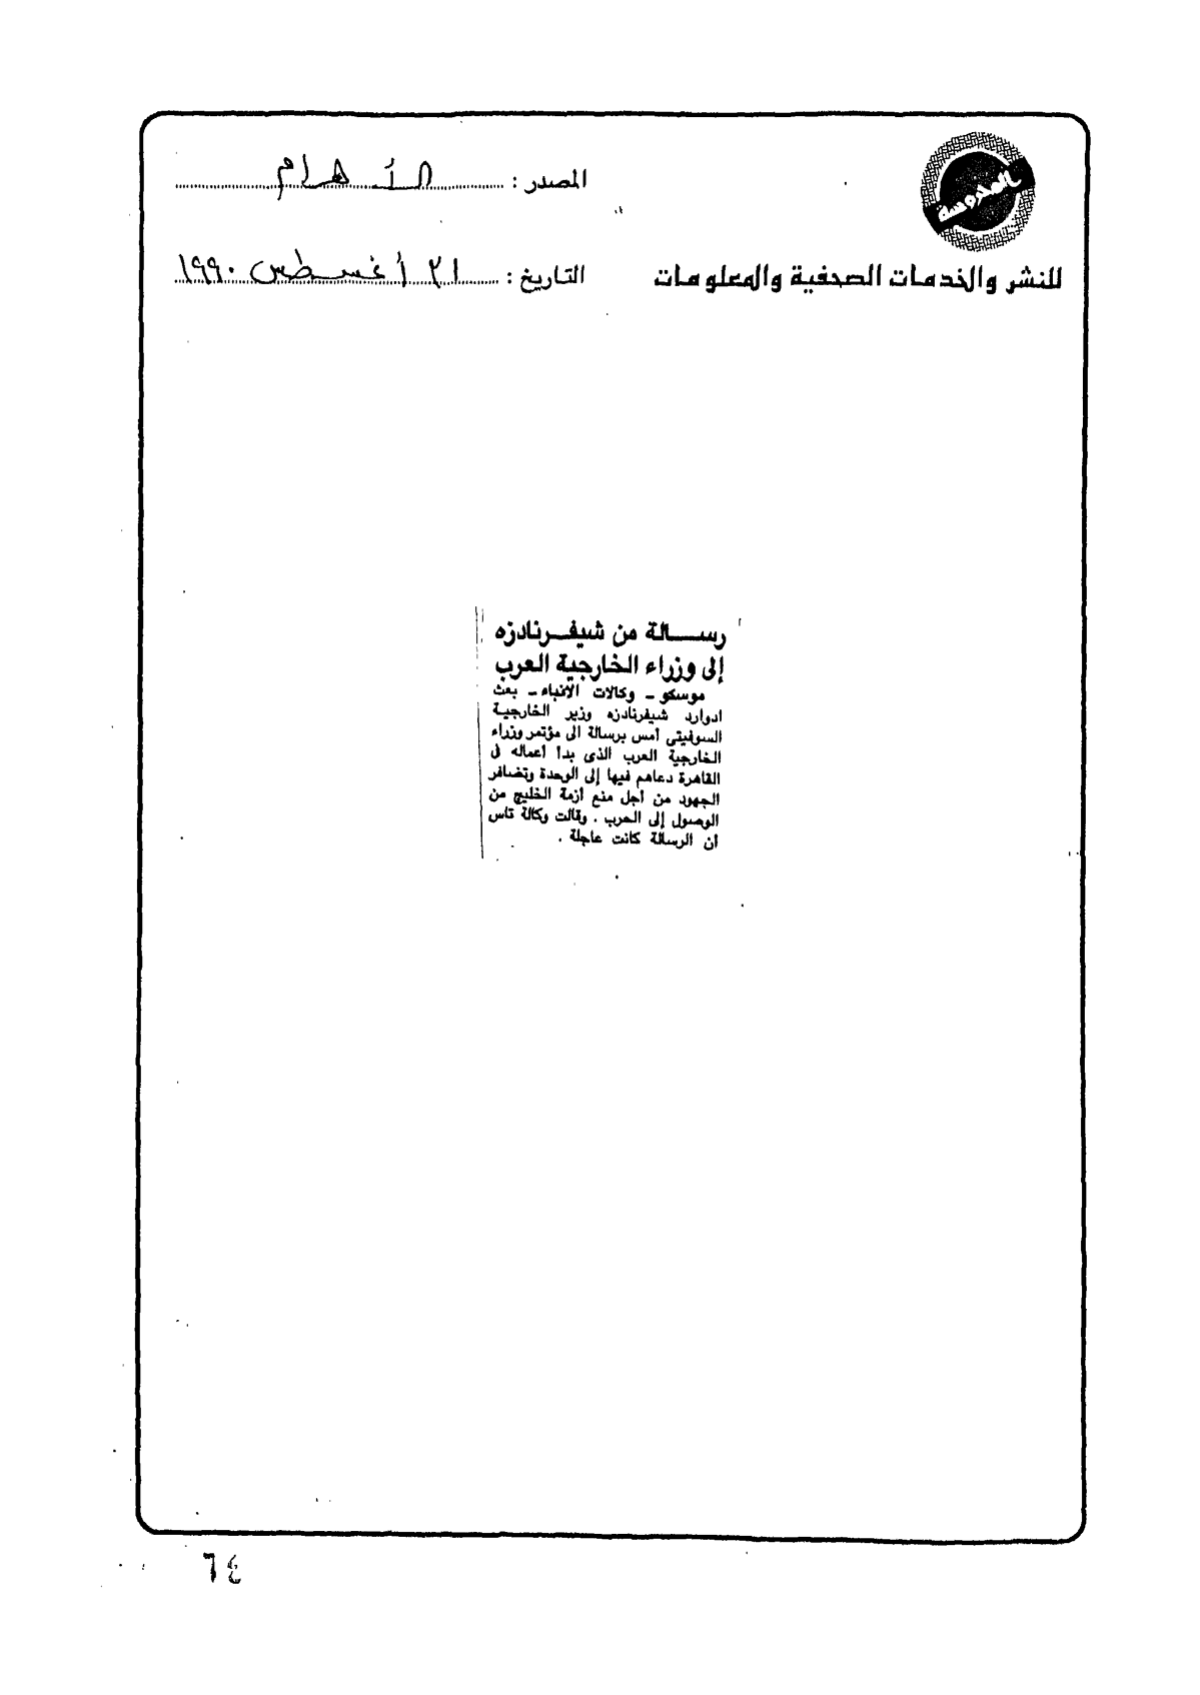 المحروسة
للنشر والخدمات الصحفية والمعلومات
المصدر : الأهرام
التاريخ : ٣١ أغسطس ١٩٩٠
رسالة من شيفرنادزه
إلى وزراء الخارجية العرب
موسكو ـ وكالات الانباء ـ بعث
ادوارد شيفرنادزه وزير الخارجية
السوفيتى أمس برسالة الى مؤتمر وزراء
الخارجية العرب الذى بدأ أعماله فى
القاهرة دعاهم فيها إلى الوحدة وتضافر
الجهود من أجل منع أزمة الخليج من
الوصول إلى الحرب . وقالت وكالة تاس
أن الرسالة كانت عاجلة .
٦٤